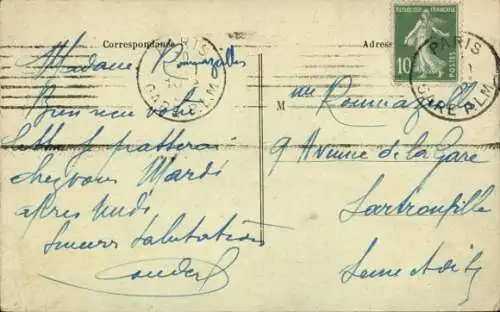 Correspondance
Adresse
Madame Roumazelles
Bien reçu votre
lettre je passerai
chez vous Mardi
après midi
Sincères Salutations
M me Roumazelle
9 Avenue de la Gare
Sartrouville
Seine et Oise
REPUBLIQUE FRANÇAISE
10
POSTES
PARIS
GARE P.L.M.
PARIS
GARE P.L.M.